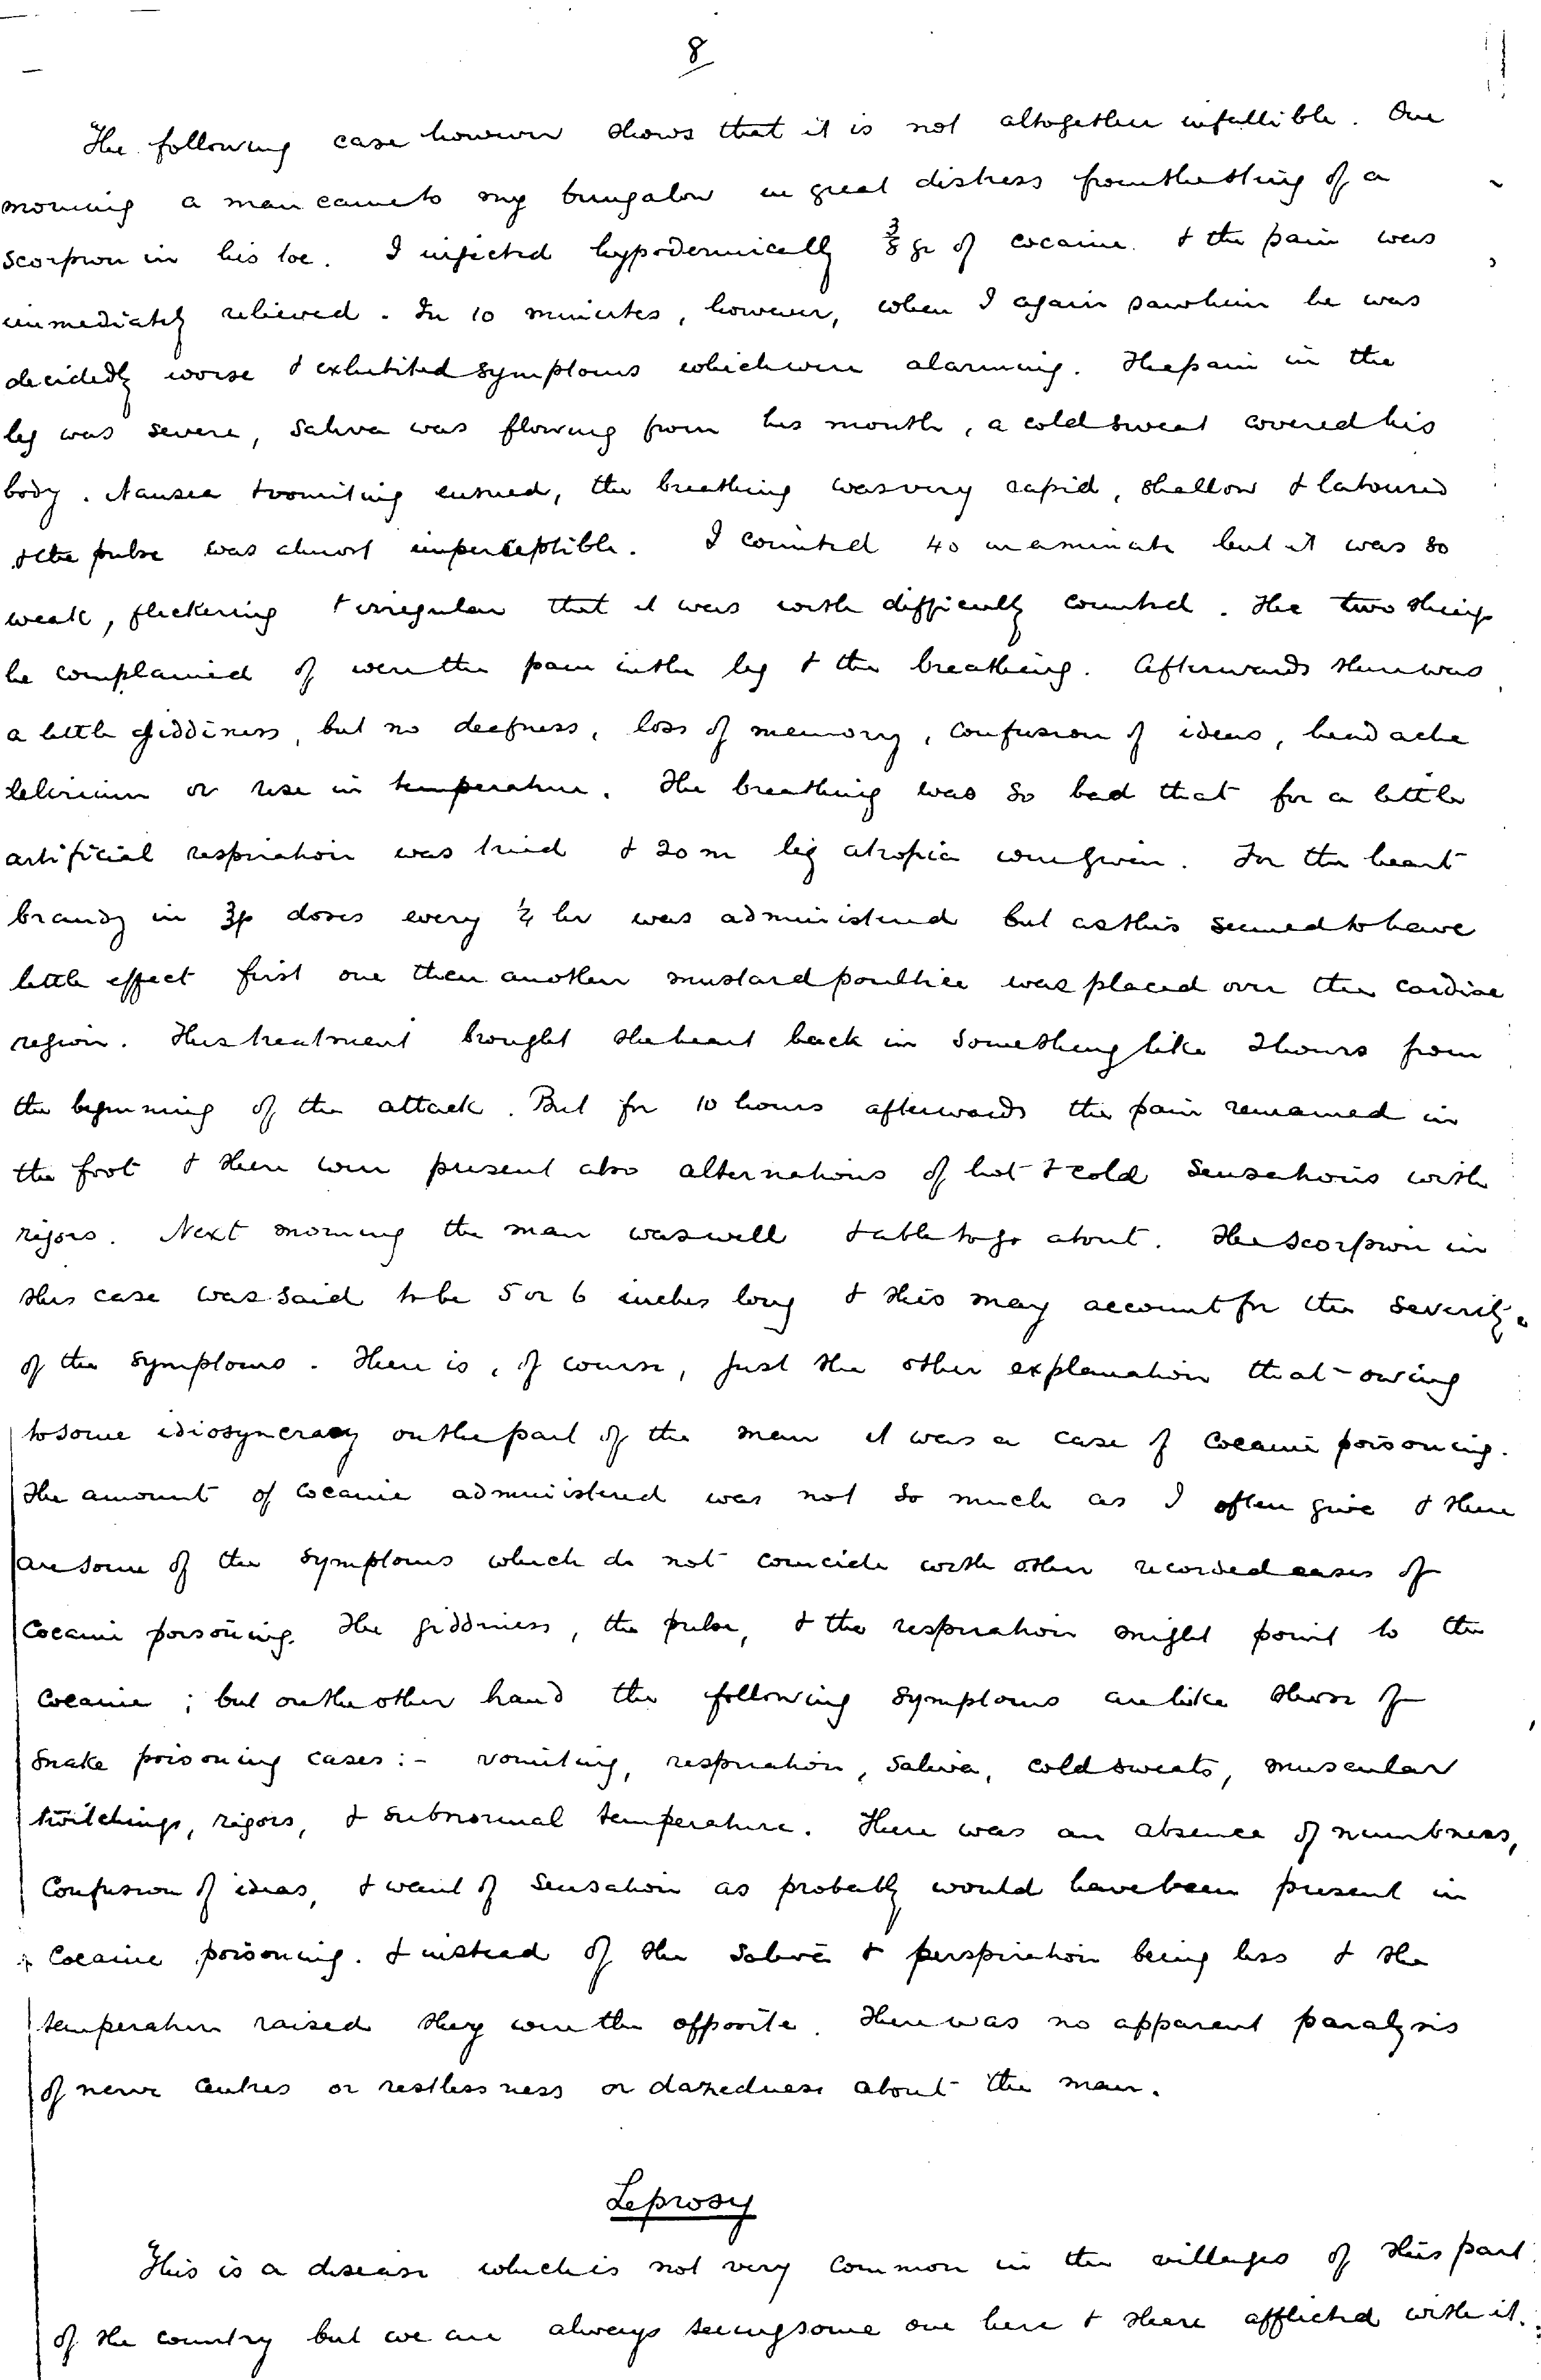 8
The following case however shows that it is not altogether infallible. One
morning a man came to my bungalow in great distress from the sting of a
scorpion in his toe. I injected hypodermically 3/8 gr of cocaine & the pain was
immediately relieved. In 10 minutes, however, when I again saw him he was
decidedly worse & exhibited symptoms which were alarming. The pain in the
leg was severe, saliva was flowing from his mouth, a cold sweat covered his
body. Nausea & vomiting ensued, the breathing was very rapid, shallow & laboured
& the pulse was almost imperceptible. I counted 40 in a minute but it was so
weak, flickering & irregular that it was with difficulty counted. The two things
he complained of were the pain in the leg & the breathing. Afterwards there was
a little giddiness, but no deafness, loss of memory, confusion of ideas, headache
delirium or rise in temperature. The breathing was so bad that for a little
artificial respiration was tried & 20 m liq atropia were given. For the heart
brandy in doses every 1/4 hr was administered but as this seemed to have
little effect first one then another mustard poultice was placed over the cardiac
region. This treatment brought the heart back in something like 2 hours from
the beginning of the attack. But for 10 hours afterwards the pain remained in
the foot & there were present also alternations of hot & cold sensations with
rigors. Next morning the man was well & able to go about. The scorpion in
this case was said to be 5 or 6 inches long & this may account for the severity
of the symptoms. There is, of course, just the other explanation that - owing
to some idiosyncrasy on the part of the man it was a case of cocaine poisoning.
The amount of cocaine administered was not so much as I often give & there
are some of the symptoms which do not coincide with other recorded cases of
cocaine poisoning. The giddiness, the pulse, & the respiration might point to the
cocaine; but on the other hand the following symptoms are like those of
snake poisoning cases:- vomiting, respiration, saliva, cold sweats, muscular
twitchings, rigors, & subnormal temperature. There was an absence of numbness,
confusion of ideas, & want of sensation as probably would have been present in
cocaine poisoning. & instead of the saliva & perspiration being less & the
temperature raised they were the opposite. There was no apparent paralysis
of nerve centres or restlessness or dazedness about the man.
Leprosy
This is a disease which is not very common in the villages of this part
of the country but we are always seeing some one here & there afflicted with it.